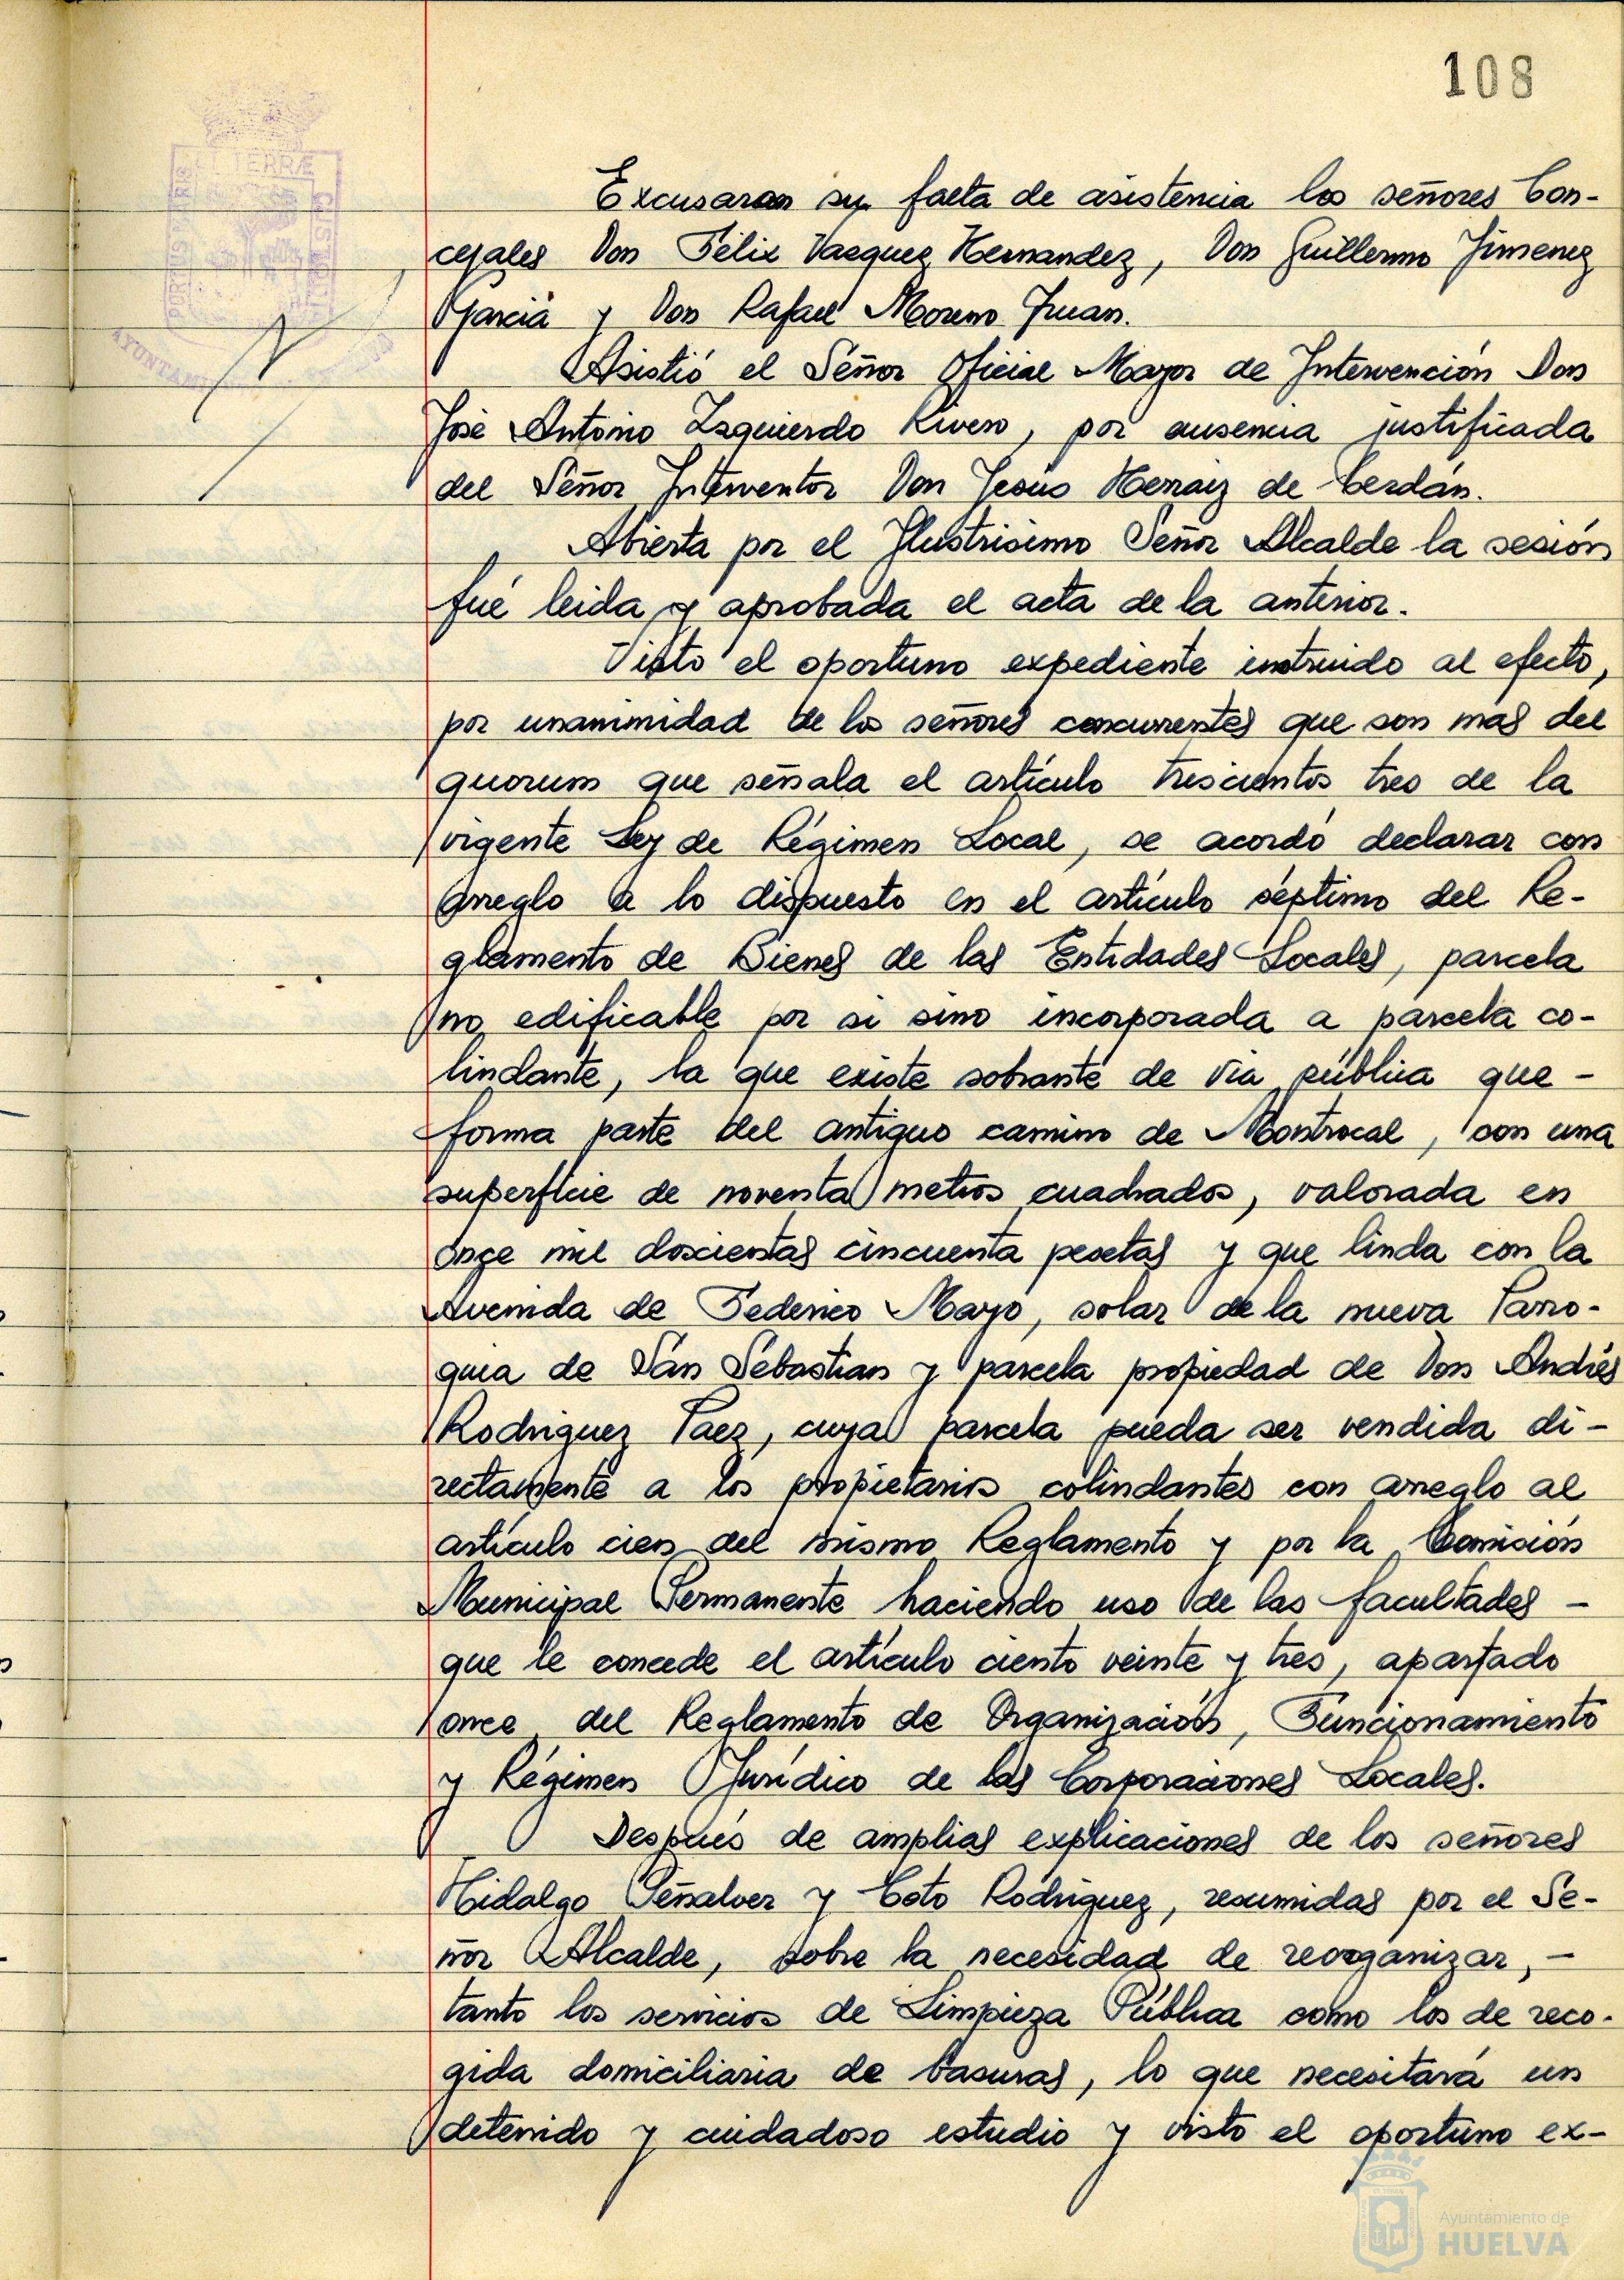 108
TERRÆ
PORTUS MARIS
CUSTODIA
AYUNTAM
Excusaron su falta de asistencia los señores Con-
cejales Don Félix Vazquez Hernandez, Don Guillermo Jimenez
Garcia y Don Rafael Moreno Juan.
Asistió el Señor Oficial Mayor de Intervención Don
José Antonio Izquierdo Rivero, por ausencia justificada
del Señor Interventor Don Jesús Herraiz de Cerdán.
Abierta por el Ilustrisimo Señor Alcalde la sesión
fué leida y aprobada el acta de la anterior.
Visto el oportuno expediente instruido al efecto,
por unanimidad de los señores concurrentes que son mas del
quorum que señala el artículo trescientos tres de la
vigente Ley de Régimen Local, se acordó declarar con
arreglo a lo dispuesto en el artículo séptimo del Re-
glamento de Bienes de las Entidades Locales, parcela
no edificable por si sino incorporada a parcela co-
lindante, la que existe sobrante de vía pública que -
forma parte del antiguo camino de Montrocal, con una
superficie de noventa metros cuadrados, valorada en
once mil doscientas cincuenta pesetas y que linda con la
Avenida de Federico Mayo, solar de la nueva Parro-
quia de San Sebastian y parcela propiedad de Don Andrés
Rodriguez Paez, cuya parcela pueda ser vendida di-
rectamente a los propietarios colindantes con arreglo al
artículo cien del mismo Reglamento y por la Comisión
Municipal Permanente haciendo uso de las facultades -
que le concede el artículo ciento veinte y tres, apartado
once del Reglamento de Organización, Funcionamiento
y Régimen Jurídico de las Corporaciones Locales.
Después de amplias explicaciones de los señores
Hidalgo Peñalver y Coto Rodriguez, resumidas por el Se-
ñor Alcalde, sobre la necesidad de reorganizar, -
tanto los servicios de Limpieza Pública como los de reco-
gida domiciliaria de basuras, lo que necesitará un
detenido y cuidadoso estudio y visto el oportuno ex-
Ayuntamiento de
HUELVA